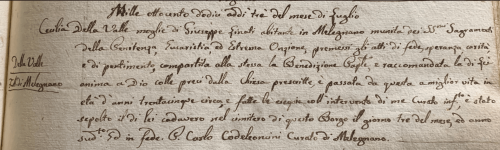 Mille ottocento dodici addì tre del mese di Luglio
Cecilia Della Valle moglie di Giuseppe Finati abitante in Melegnano munita dei S.mi Sagramenti
della Penitenza Eucaristia ed Estrema Unzione, premessi gli atti di fede, speranza carità
Della Valle
e di pentimento, compartita alla stessa la Benedizione Pap.le e raccomandata la di lei
di Melegnano
anima a Dio colle preci dalla Chiesa prescritte è passata da questa a miglior vita in
età d'anni trentacinque circa, e fatte le esequie coll'intervento di me Curato inf.to è stato
sepolto il di lei cadavero nel cimitero di questo Borgo il giorno tre del mese, ed anno
sud.to Ed in fede. P. Carlo Codeleoncini Curato di Melegnano.